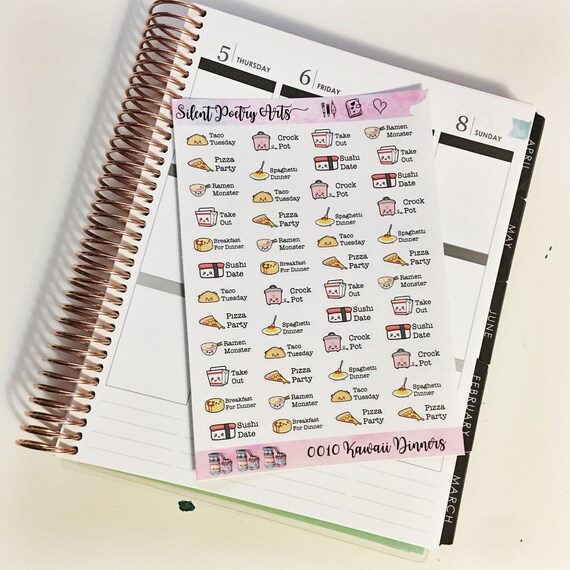 5 THURSDAY
6 FRIDAY
8 SUNDAY
Silent Poetry Arts
Taco
Tuesday
Pizza
Party
Ramen
Monster
Take
Out
Breakfast
For Dinner
Sushi
Date
Taco
Tuesday
Pizza
Party
Ramen
Monster
Take
Out
Breakfast
For Dinner
Sushi
Date
Crock
Pot
Spaghetti
Dinner
Taco
Tuesday
Pizza
Party
Ramen
Monster
Breakfast
For Dinner
Crock
Pot
Spaghetti
Dinner
Taco
Tuesday
Pizza
Party
Ramen
Monster
Breakfast
For Dinner
Take
Out
Sushi
Date
Crock
Pot
Spaghetti
Dinner
Taco
Tuesday
Pizza
Party
Take
Out
Sushi
Date
Crock
Pot
Spaghetti
Dinner
Taco
Tuesday
Pizza
Party
Ramen
Monster
Take
Out
Sushi
Date
Crock
Pot
Spaghetti
Dinner
Pizza
Party
Ramen
Monster
Take
Out
Sushi
Date
Crock
Pot
Spaghetti
Dinner
Pizza
Party
0010 Kawaii Dinners
APRIL
MAY
JUNE
FEBRUARY
MARCH